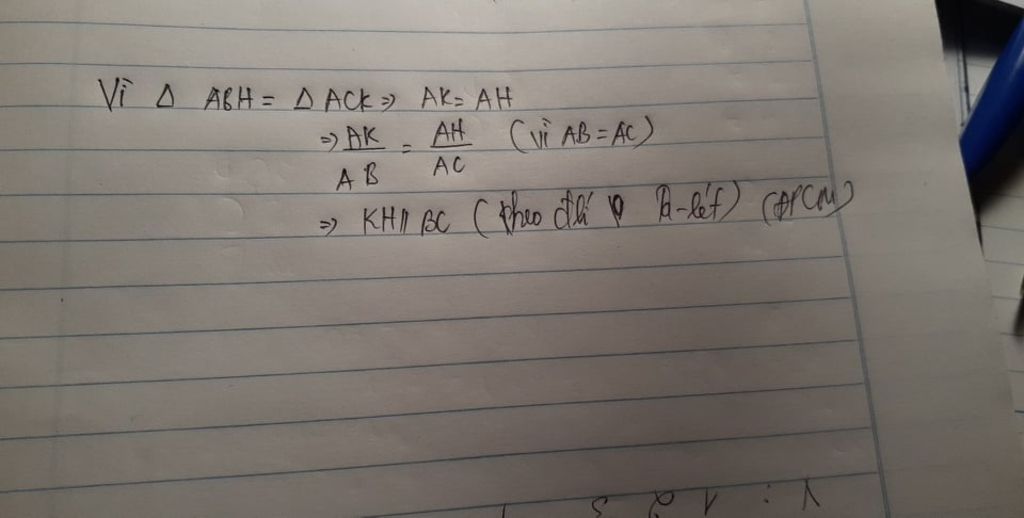 Vì Δ ABH = Δ ACK ⇒ AK = AH
⇒ AK/AB = AH/AC (vì AB = AC)
⇒ KH // BC (theo đlí Ta-lét) (đPCM)